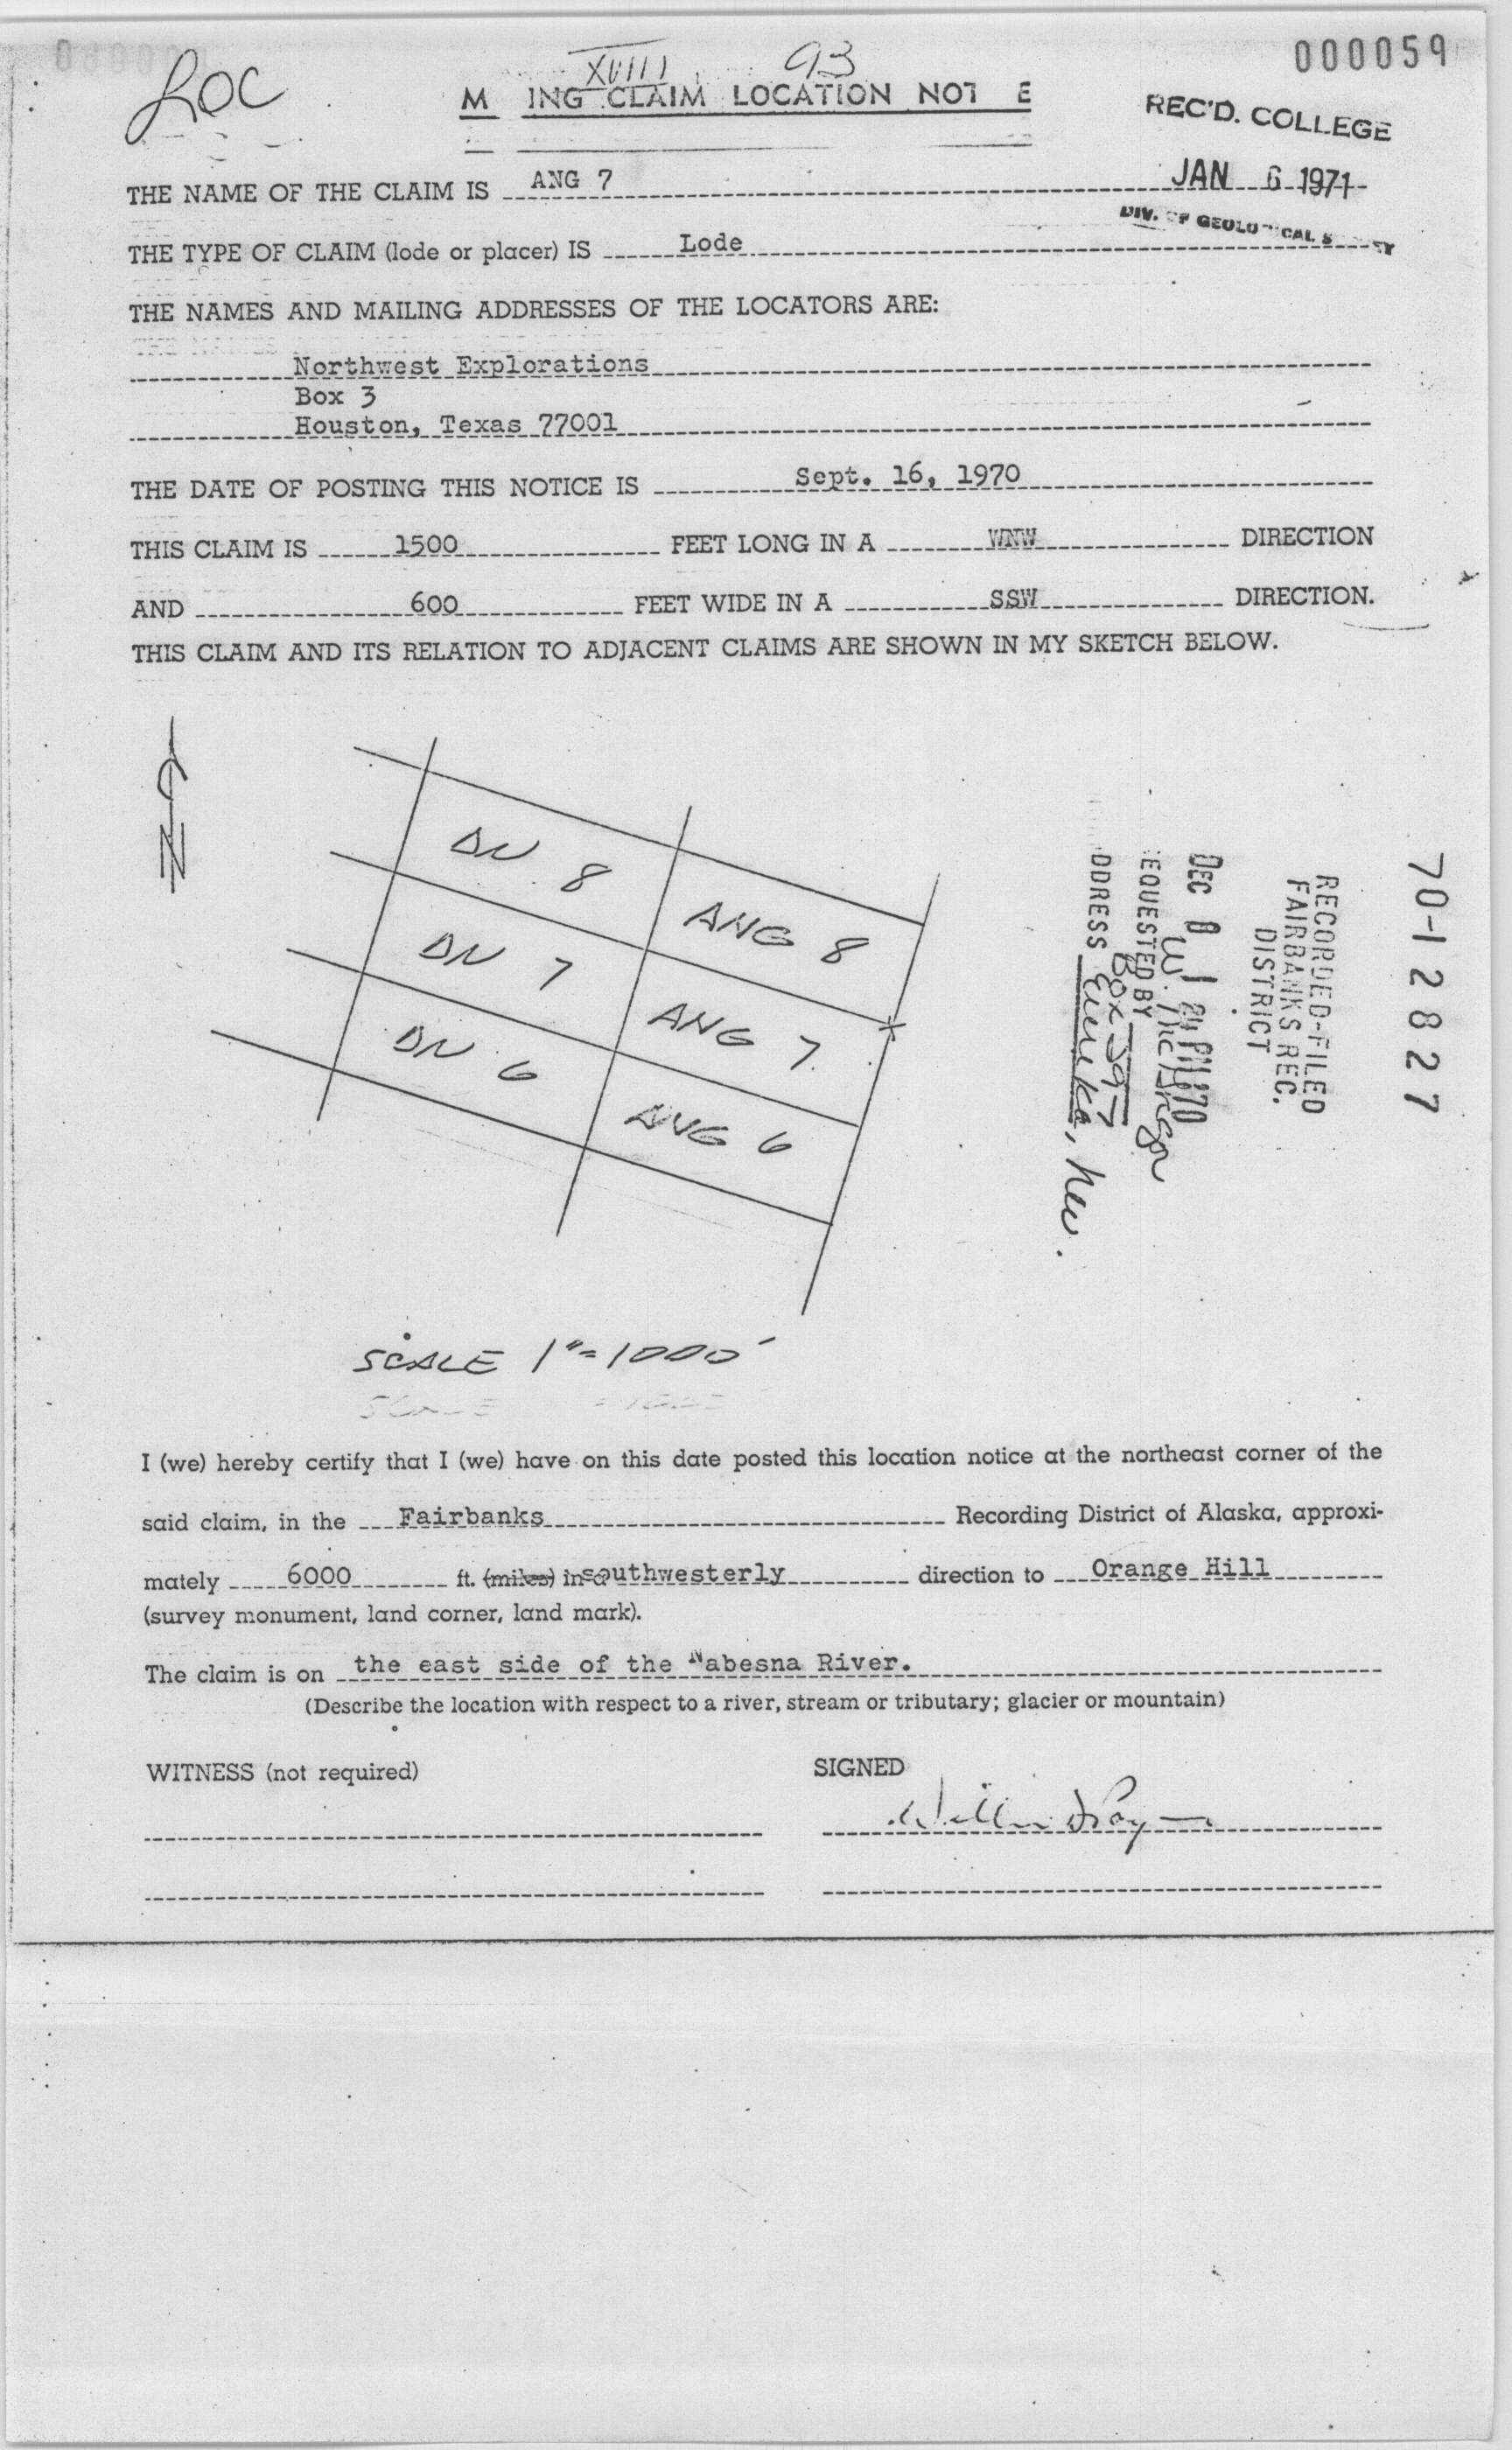 000059
LOC
XVIII 93
M ING CLAIM LOCATION NOT E
REC'D. COLLEGE
JAN 6 1971
THE NAME OF THE CLAIM IS ANG 7
DIV. OF GEOLO CAL S EY
THE TYPE OF CLAIM (lode or placer) IS Lode
THE NAMES AND MAILING ADDRESSES OF THE LOCATORS ARE:
Northwest Explorations
Box 3
Houston, Texas 77001
THE DATE OF POSTING THIS NOTICE IS Sept. 16, 1970
THIS CLAIM IS 1500 FEET LONG IN A WNW DIRECTION
AND 600 FEET WIDE IN A SSW DIRECTION.
THIS CLAIM AND ITS RELATION TO ADJACENT CLAIMS ARE SHOWN IN MY SKETCH BELOW.
N
DN 8
ANG 8
DN 7
ANG 7
DN 6
ANG 6
70-12827
RECORDED-FILED
FAIRBANKS REC.
DISTRICT
DEC 8 1 24 PM 1970
EQUESTED BY W.
Box 397
DDRESS Eureka, Nev.
SCALE 1"=1000'
I (we) hereby certify that I (we) have on this date posted this location notice at the northeast corner of the
said claim, in the Fairbanks Recording District of Alaska, approxi-
mately 6000 ft. (miles) in a southwesterly direction to Orange Hill
(survey monument, land corner, land mark).
The claim is on the east side of the Nabesna River.
(Describe the location with respect to a river, stream or tributary; glacier or mountain)
WITNESS (not required) SIGNED